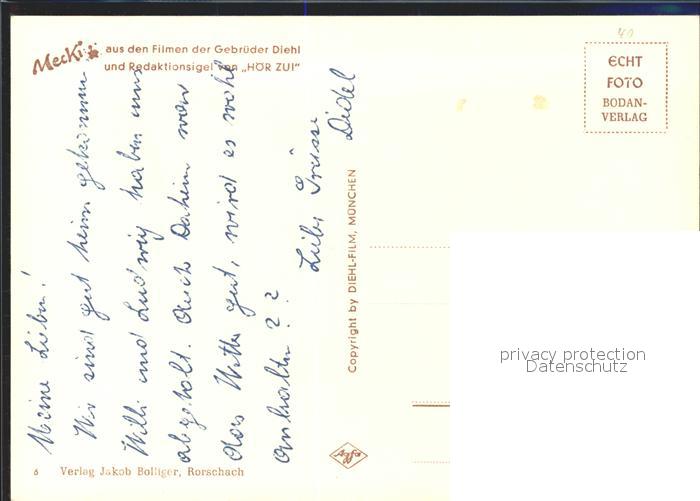 Mecki aus den Filmen der Gebrüder Diehl
und Redaktionsigel von „HÖR ZU!“
40
ECHT
FOTO
BODAN-
VERLAG
Meine Lieben!
Wir sind gut heim gekommen
Willi und Ludwig haben uns
abgeholt. Auch Daheim war
das Wetter gut, wird es wohl
anhalten ? ?
Liebe Grüsse
Copyright by DIEHL-FILM, MÜNCHEN
privacy protection
Datenschutz
Agfa
6 Verlag Jakob Bolliger, Rorschach